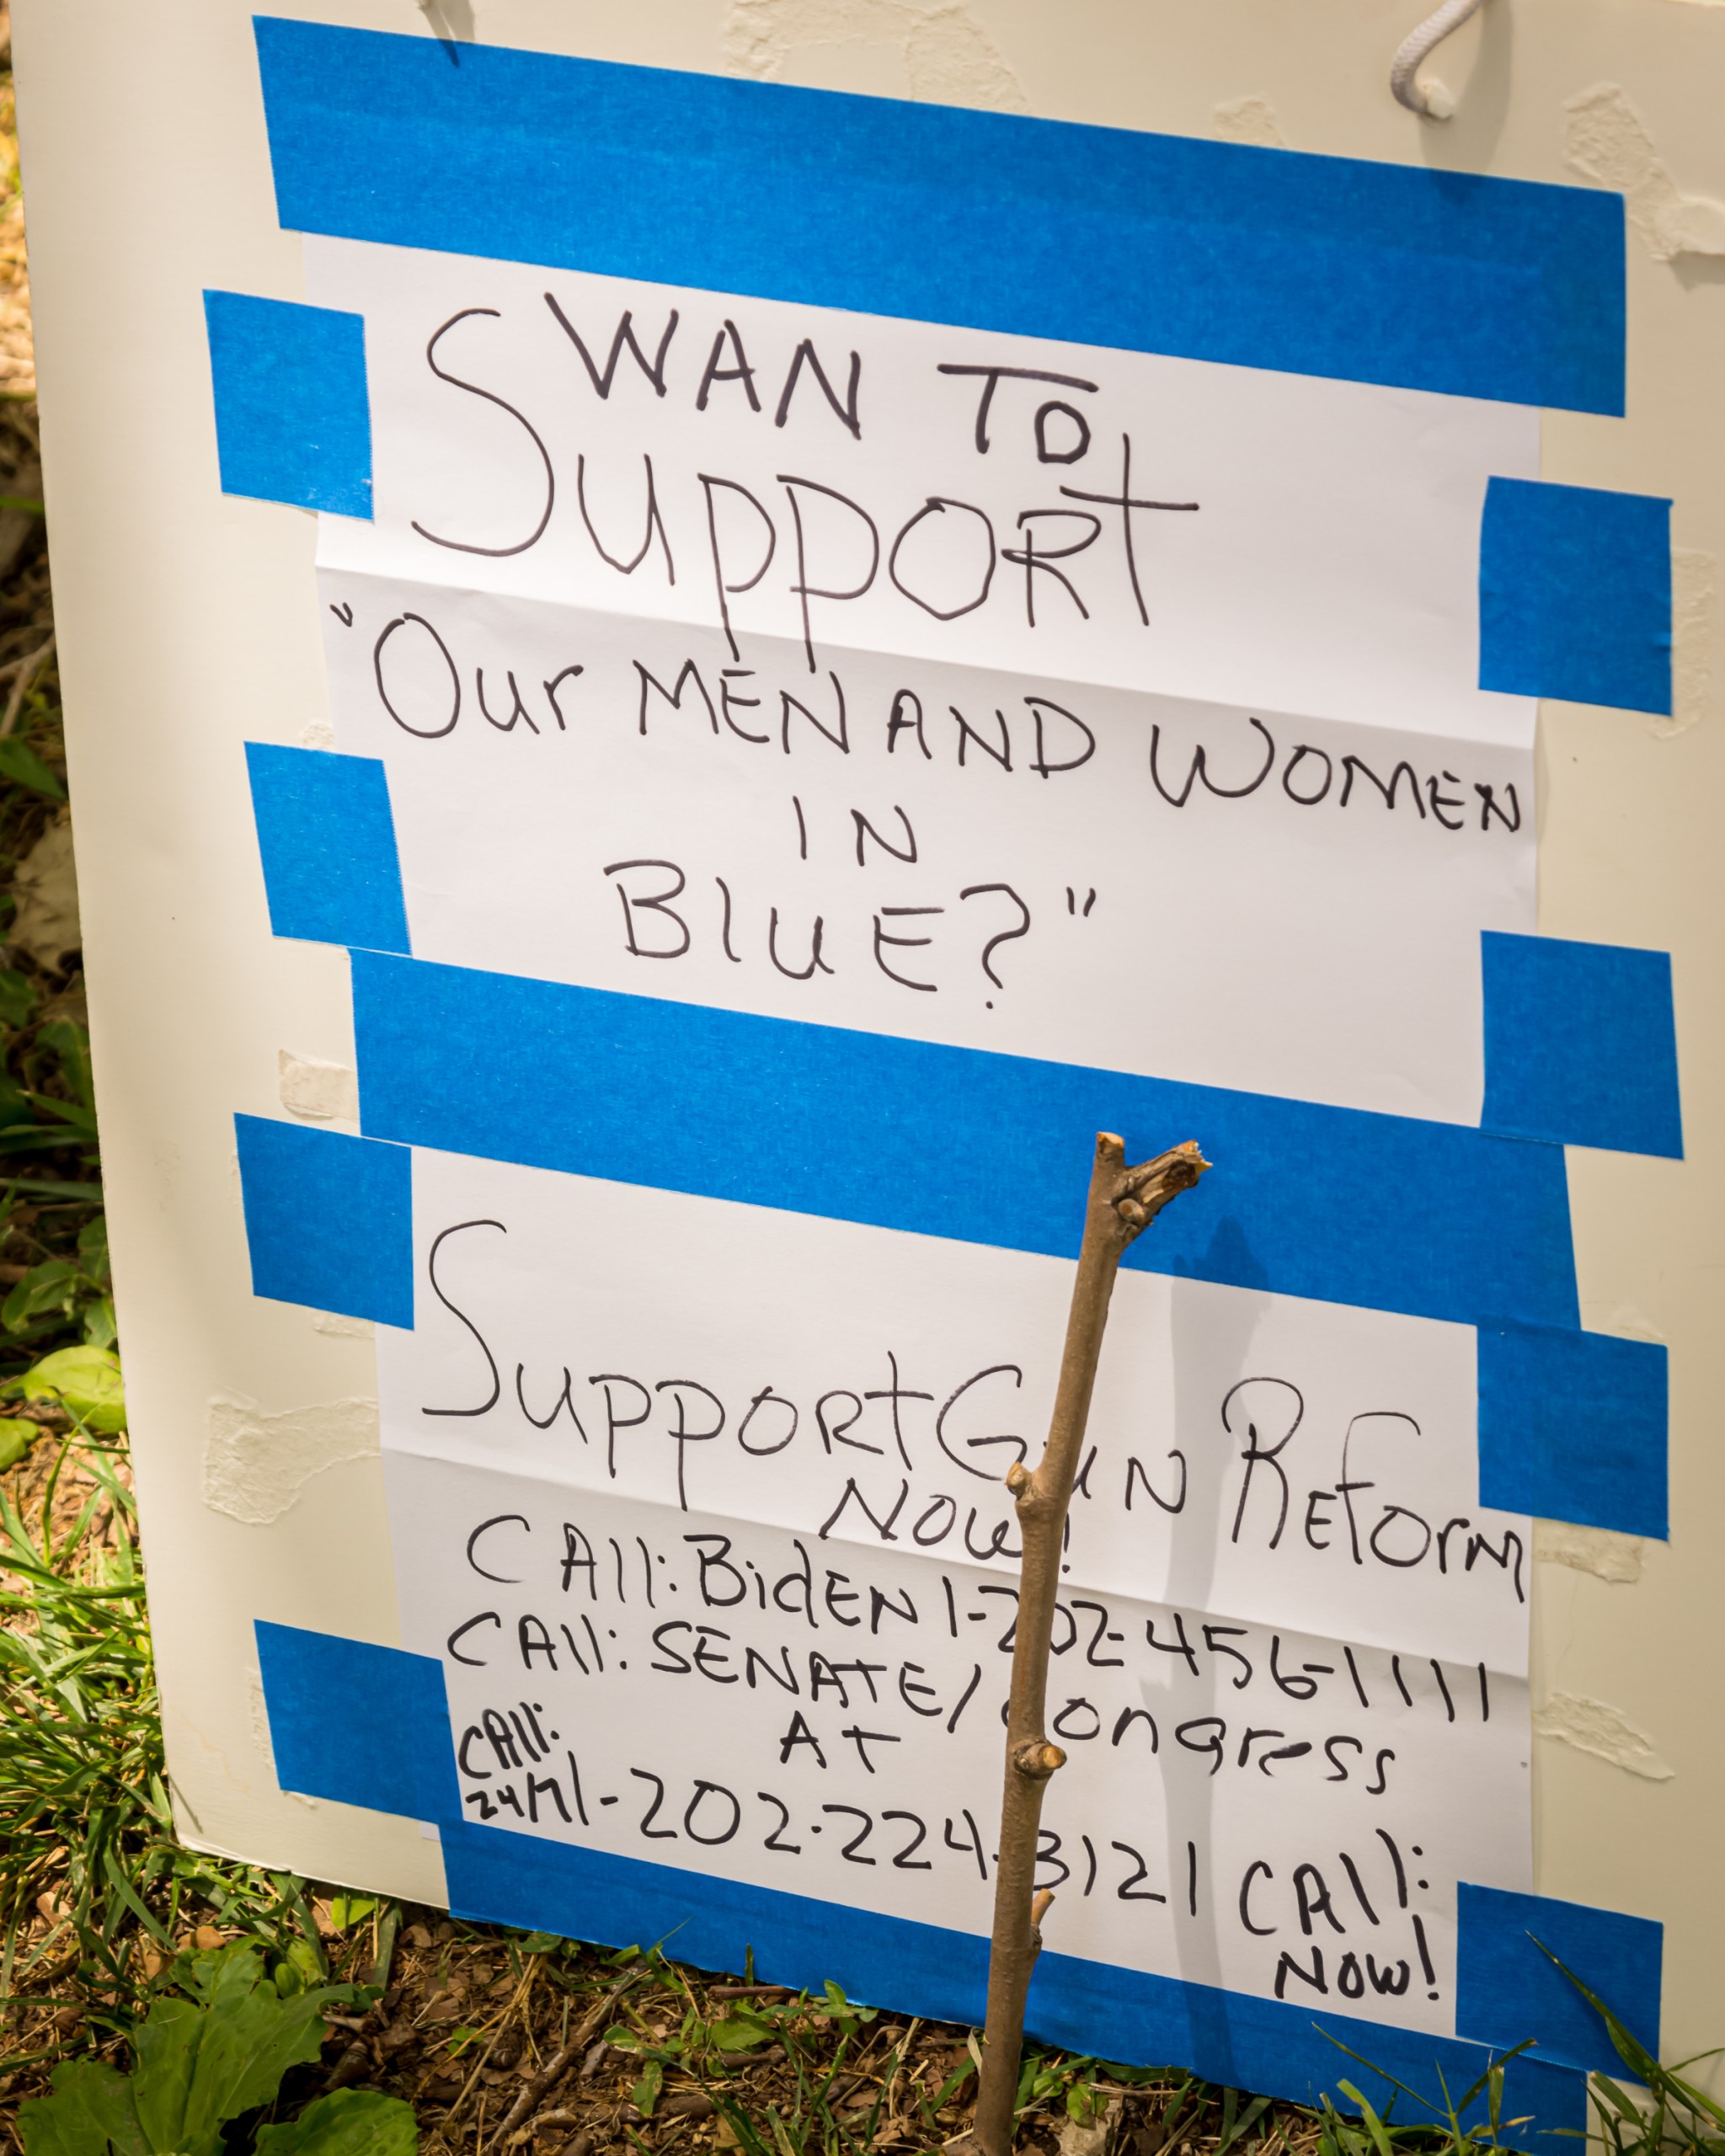 WAN TO
SuppORt
"Our MEN AND WOMEN
IN
BluE?"
SuppORt GuN REform
NOw!
CAll: BidEN 1-202-456-1111
CAll: SENATE/Congress
AT
CAll:
24/7 1-202-224-3121 CAll:
NOw!